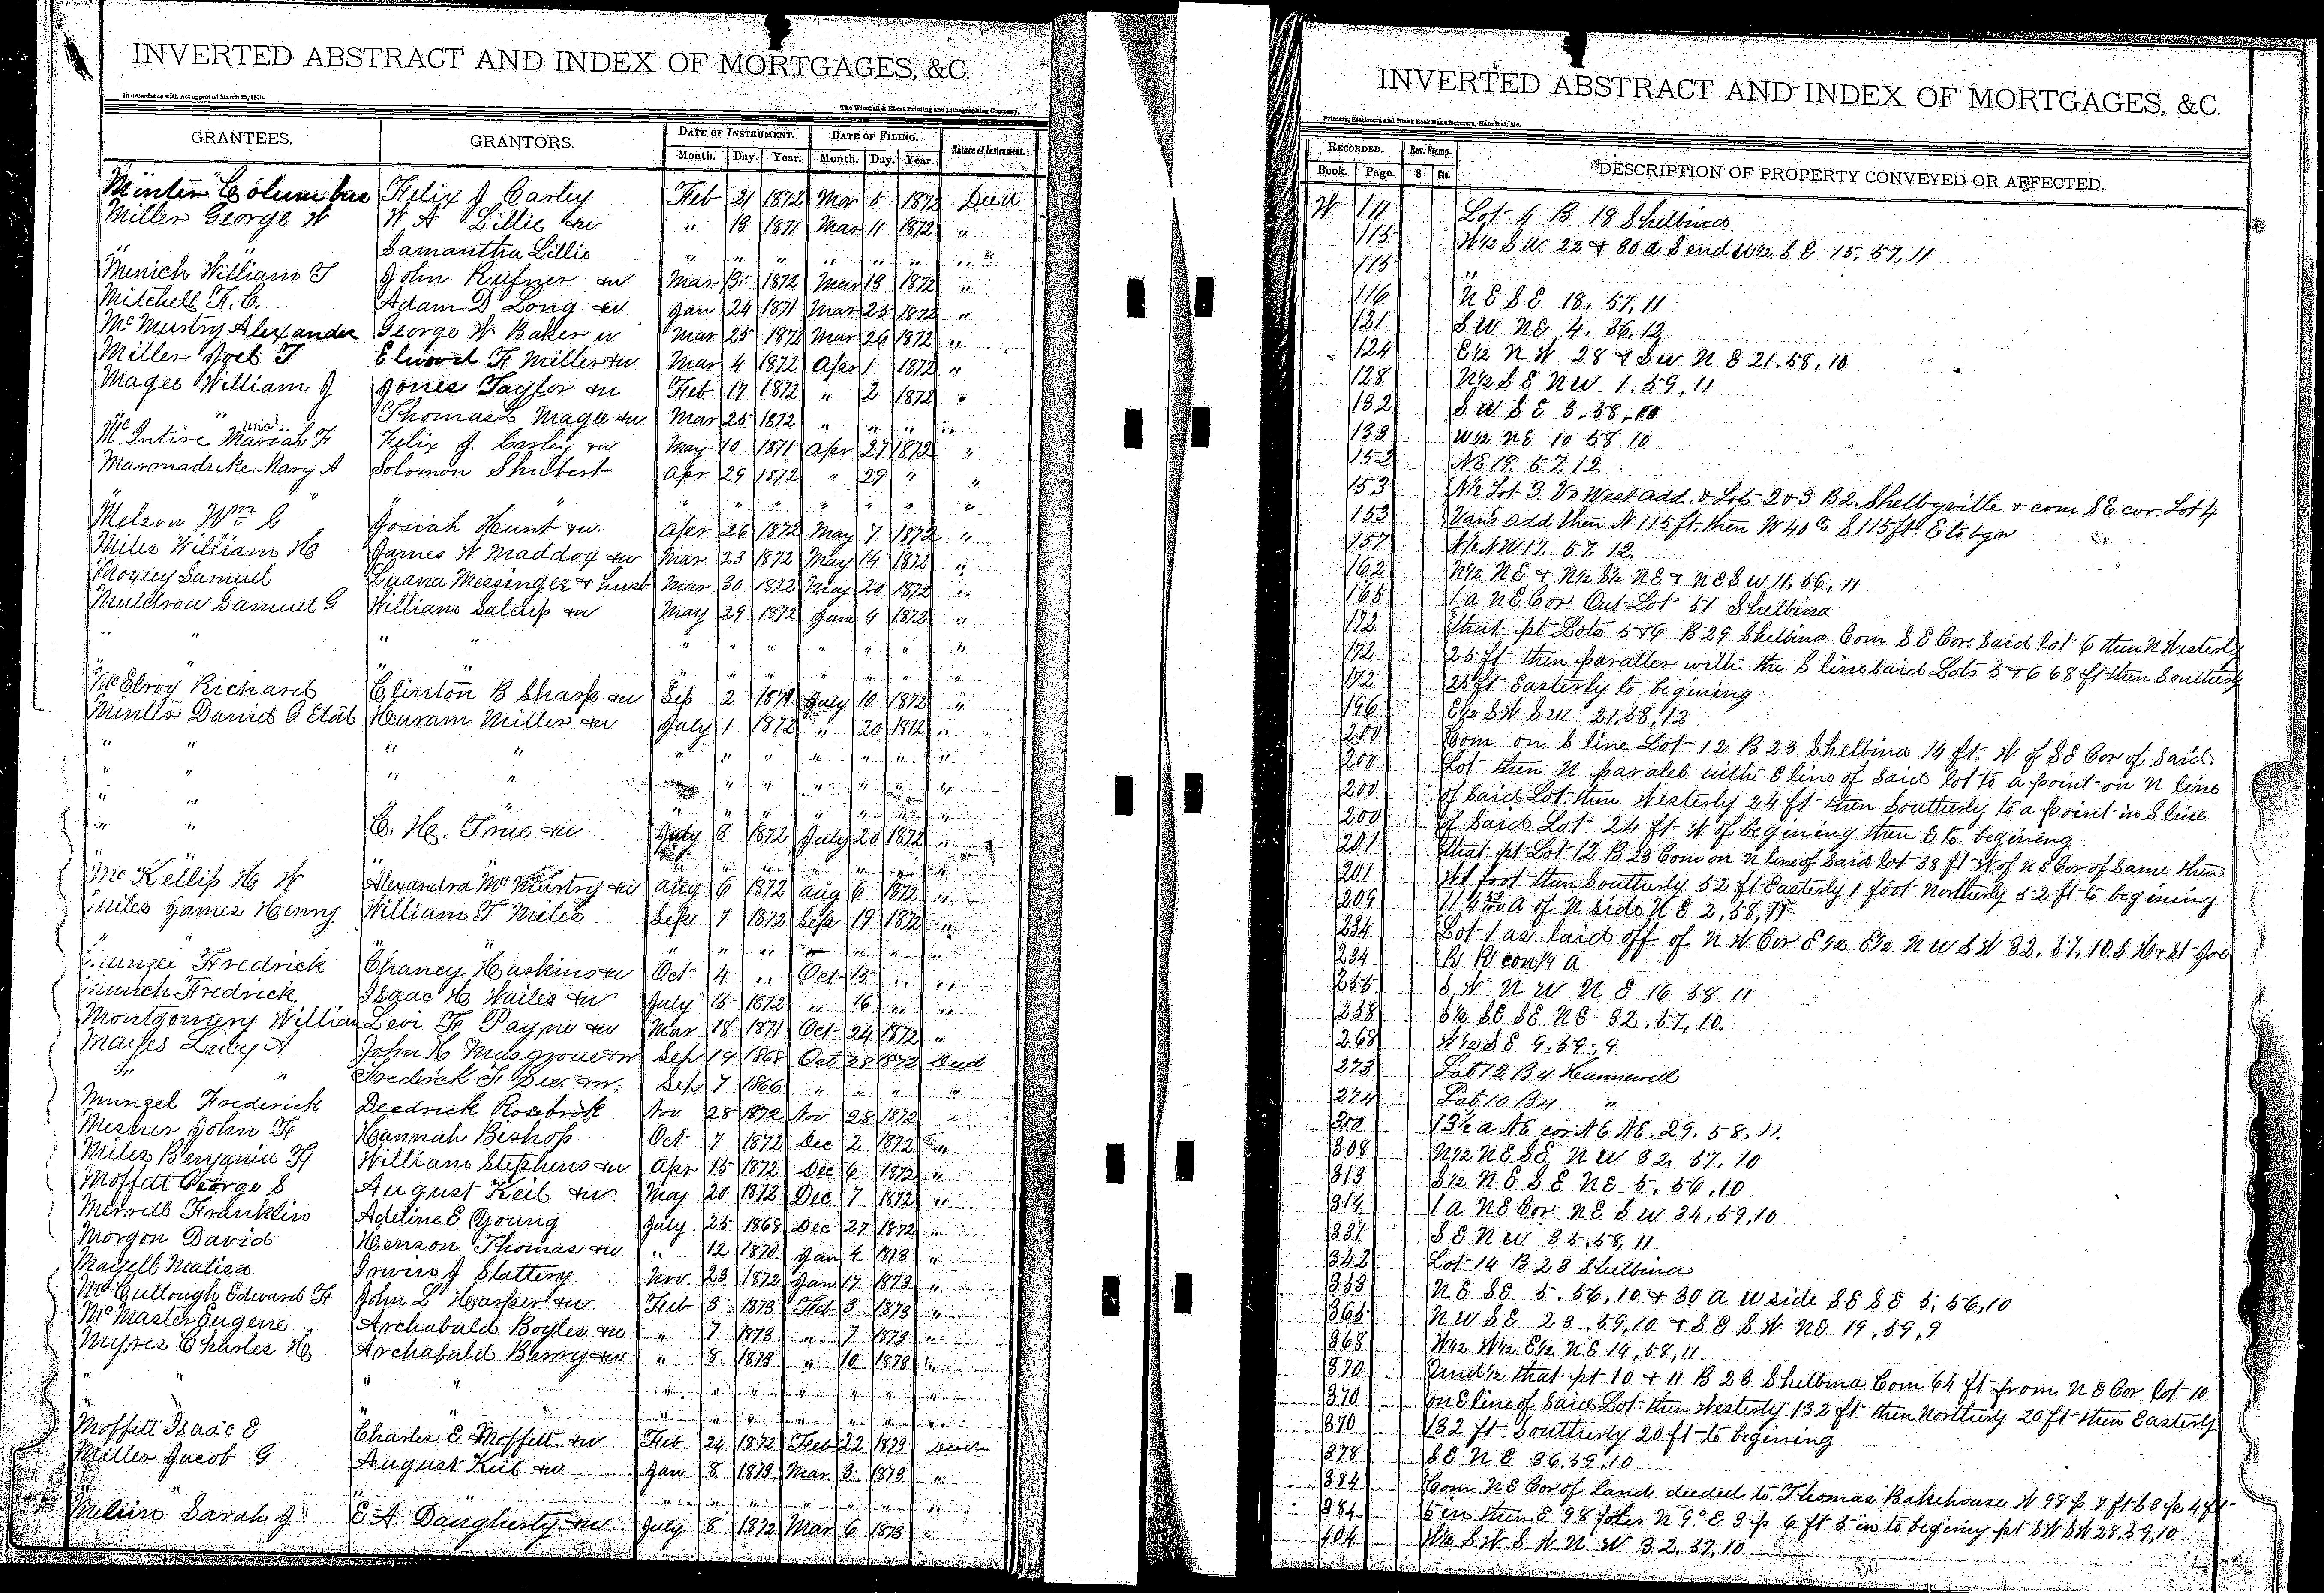 INVERTED ABSTRACT AND INDEX OF MORTGAGES, &C.
In accordance with Act approved March 25, 1870.
The Winchell & Ebert Printing and Lithographing Company,
GRANTEES. GRANTORS. DATE OF INSTRUMENT. DATE OF FILING. Nature of Instrument.
Month. Day. Year. Month. Day. Year.
Minter Columbus Felix J Carley Feb 21 1872 Mar 5 1872 Deed
Miller George W W A Lillie &w " 13 1871 Mar 11 1872 "
" " Samantha Lillie " " " " " " "
Menich William T John Rufner &w Mar 1872 Mar 19 1872 "
Mitchell H. C. Adam D Long &w Jan 24 1871 Mar 25 1872 "
McMurtry Alexander George W Baker w Mar 25 1872 Mar 26 1872 "
Miller Joel T H Miller &w Mar 4 1872 Apr 1 1872 "
Magee William J Jones Taylor &w Feb 17 1872 " 2 1872 "
" Thomas L Magee &w Mar 25 1872 " " " "
McIntire Mariah F Felix J. Carley &w May 10 1871 Apr 27 1872 "
Marmaduke Mary A Solomon Shubert Apr 29 1872 " 29 " "
" " " " " " " " " "
Melson Wm G Josiah Hunt &w. Apr 26 1872 May 7 1872 "
Miles William H James W Maddox &w Mar 23 1872 May 14 1872 "
Moxley Samuel Luana Messinger & husb Mar 30 1872 May 20 1872 "
Muldrow Samuel G William &w May 29 1872 Jun 4 1872 "
" " " " " " " " " " "
" " " " " " " " "
McElroy Richard Clinton B Sharp &w Sep 2 1871 July 10 1872 "
Minter Daniel G Etal Huram Miller &w July 1 1872 " 20 1872 "
" " " " " " " " " " "
" " " " " " " " " "
" " " " " " " " "
" " C. H. True &w July 8 1872 July 20 1872 "
" " " " " " " "
McKellip H W Alexandra McMurtry &w Aug 6 1872 Aug 6 1872 "
Miles James Henry William T Miles Sept 7 1872 Sept 19 1872 "
" " " " " " " " "
Fredrick Chaney Haskins &w Oct 4 " Oct 15 " "
Fredrick Isaac H Wailes &w July 15 1872 " 16 " "
Montgomery William Levi F Payne &w Mar 18 1871 Oct 24 1872 "
Mayes Lucy A John H Musgrove &w Sep 19 1868 Oct 28 1872 Deed
" " Fredrick F &w. Sep 7 1866 " " " "
Munzel Frederick Deedrick Rosebrok Nov 28 1872 Nov 28 1872 "
Mesner John F Hannah Bishop Oct 7 1872 Dec 2 1872 "
Miles Benjamin F William Stephens &w Apr 15 1872 Dec 6 1872 "
Moffett George S August Keil &w May 20 1872 Dec 7 1872 "
Merrell Franklin Adeline E Young July 25 1868 Dec 27 1872 "
Morgan David Henson Thomas &w " 12 1870 Jan 4 1873 "
Mayell Malisa Irwin J Slattery Nov. 23 1872 Jan 17 1873 "
McCullough Edward F John L Harper &w Feb 3 1873 Feb 3 1873 "
McMaster Eugene Archabald Boyles &w " 7 1873 " 7 1873 "
Myres Charles H Archabald Berry &w " 8 1873 " 10 1873 "
" " " " " " " " " " "
" " " " " " "
Moffett Isaac E Charles E Moffett &w Feb 24 1872 Feb 22 1873 Deed
Miller Jacob G August Keil &w Jan 8 1873 Mar 3 1873 "
" " " " " " " "
Sarah J E A Daugherty &w July 8 1872 Mar 6 1873 "
INVERTED ABSTRACT AND INDEX OF MORTGAGES, &C.
Printers, Stationers and Blank Book Manufacturers, Hannibal, Mo.
RECORDED. Rev. Stamp. DESCRIPTION OF PROPERTY CONVEYED OR AFFECTED.
Book. Page. $ Cts.
W 111 Lot 4 B 18 Shelbina
115 W½ S W 22 & 80 a S end W½ S E 15, 57, 11
115 "
116 N E S E 18, 57, 11
121 S W N E 4, 56, 12
124 E½ N W 28 & S W N E 21, 58, 10
128 N½ S E N W 1, 59, 11
132 S W S E 3, 58, 10
133 W½ N E 10 58 10
152 NE 19. 57. 12
153 N½ Lot 3 West add. & Lots 2 & 3 B 2. Shelbyville & com S E cor. Lot 4
153 Vans add then N 115 ft. then W 40 S 115 ft. E to bgn
157 N W 17. 57. 12.
162 N½ N E & N½ S½ N E & N E S W 11, 56, 11
165 1 a N E Cor Out Lot 51 Shelbina
172 that pt Lots 5 & 6 B 29 Shelbina Com S E Cor Said lot 6 then N Westerly
172 25 ft then paraller with the S line said Lots 5 & 6 68 ft then Southerly
172 25 ft Easterly to begining
196 E½ S W S W 21, 58, 12
200 Com on S line Lot 12 B 23 Shelbina 14 ft. W of S E Cor of Said
200 Lot then N paralel with E line of Said lot to a point on N line
200 of Said Lot then Westerly 24 ft then Southerly to a point in S line
200 of Said Lot 24 ft W of begining then E to begining
201 that pt Lot 12 B 23 Com on N line of Said lot 38 ft W of N E Cor of Same then
201 W 1 foot then Southerly 52 ft Easterly 1 foot Northerly 52 ft to begining
209 a of N side N E 2, 58, 11
234 Lot 1 as laid off of N W Cor E½ E½ N W S W 32, 57, 10. S H & St Joe
234 R R
255 S W N W N E 16 58 11
258 S½ S E S E N E 32, 57, 10.
268 W½ S E 9, 59, 9
273 Lot 12 B 4 Hunnewell
274 Lot 10 B 4 "
300 13½ a N E cor N E N E. 29. 58. 11.
308 N½ N E S E N W 32, 57, 10
313 S½ N E S E N E 5, 56, 10
314 1 a N E Cor N E S W 34, 59, 10
331 S E N W 35, 58, 11
342 Lot 14 B 23 Shelbina
353 N E S E 5, 56, 10 & 30 A W side S E S E 5, 56, 10
365 N W S E 23, 59, 10 & S E S W N E 19, 59, 9
368 W½ W½ E½ N E 14, 58, 11
370 Und½ that pt 10 & 11 B 26 Shelbina Com 64 ft from N E Cor lot 10
370 on E line of Said Lot then Westerly 132 ft then Northerly 20 ft then Easterly
370 132 ft Southerly 20 ft to begining
378 S E N E 36, 59, 10
384 Com N E Cor of land deeded to Thomas Bakehouse W 98 p 7 ft S 3 p 4 ft
384 5 in then E 98 poles N 9° E 3 p 6 ft 5 in to begining pt S W S W 28, 59, 10
404 W½ S W S W N W 32, 57, 10